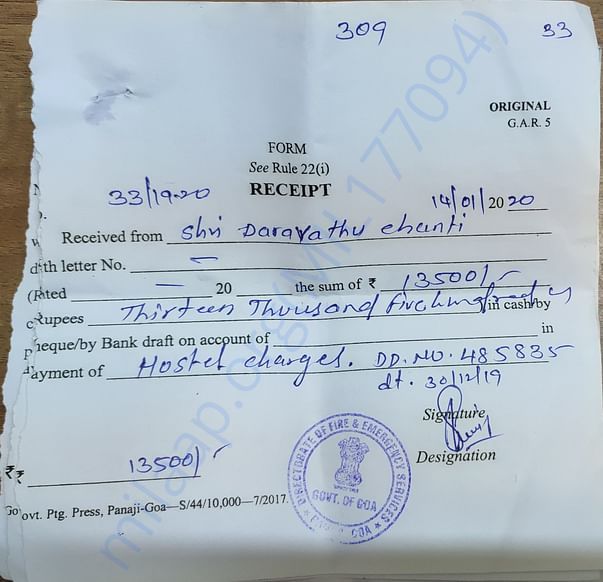 309 33
ORIGINAL
G.A.R. 5
FORM
See Rule 22(i)
RECEIPT
33/19-20 14/01/2020
Received from Shri Daravathu chanti
th letter No. –
(Rated — 20 the sum of ₹ 13500/-
Rupees Thirteen Thousand Five hundred only in cash/by
heque/by Bank draft on account of in
ayment of Hostel charges. DD. NO. 485835
dt. 30/12/19
Signature
Designation
₹ 13500/-
DIRECTORATE OF FIRE & EMERGENCY SERVICES
GOVT. OF GOA
GOA
Govt. Ptg. Press, Panaji-Goa—S/44/10,000—7/2017.
milaap.org(MIL177094)